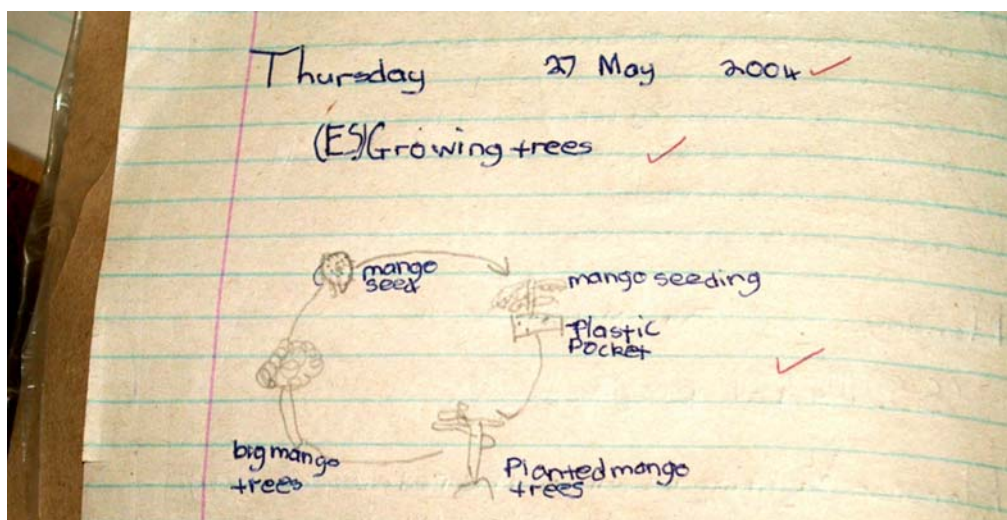 Thursday 27 May 2004
(ES)Growing trees
mango
seed
mango seeding
Plastic
Pocket
big mango
trees
Planted mango
trees